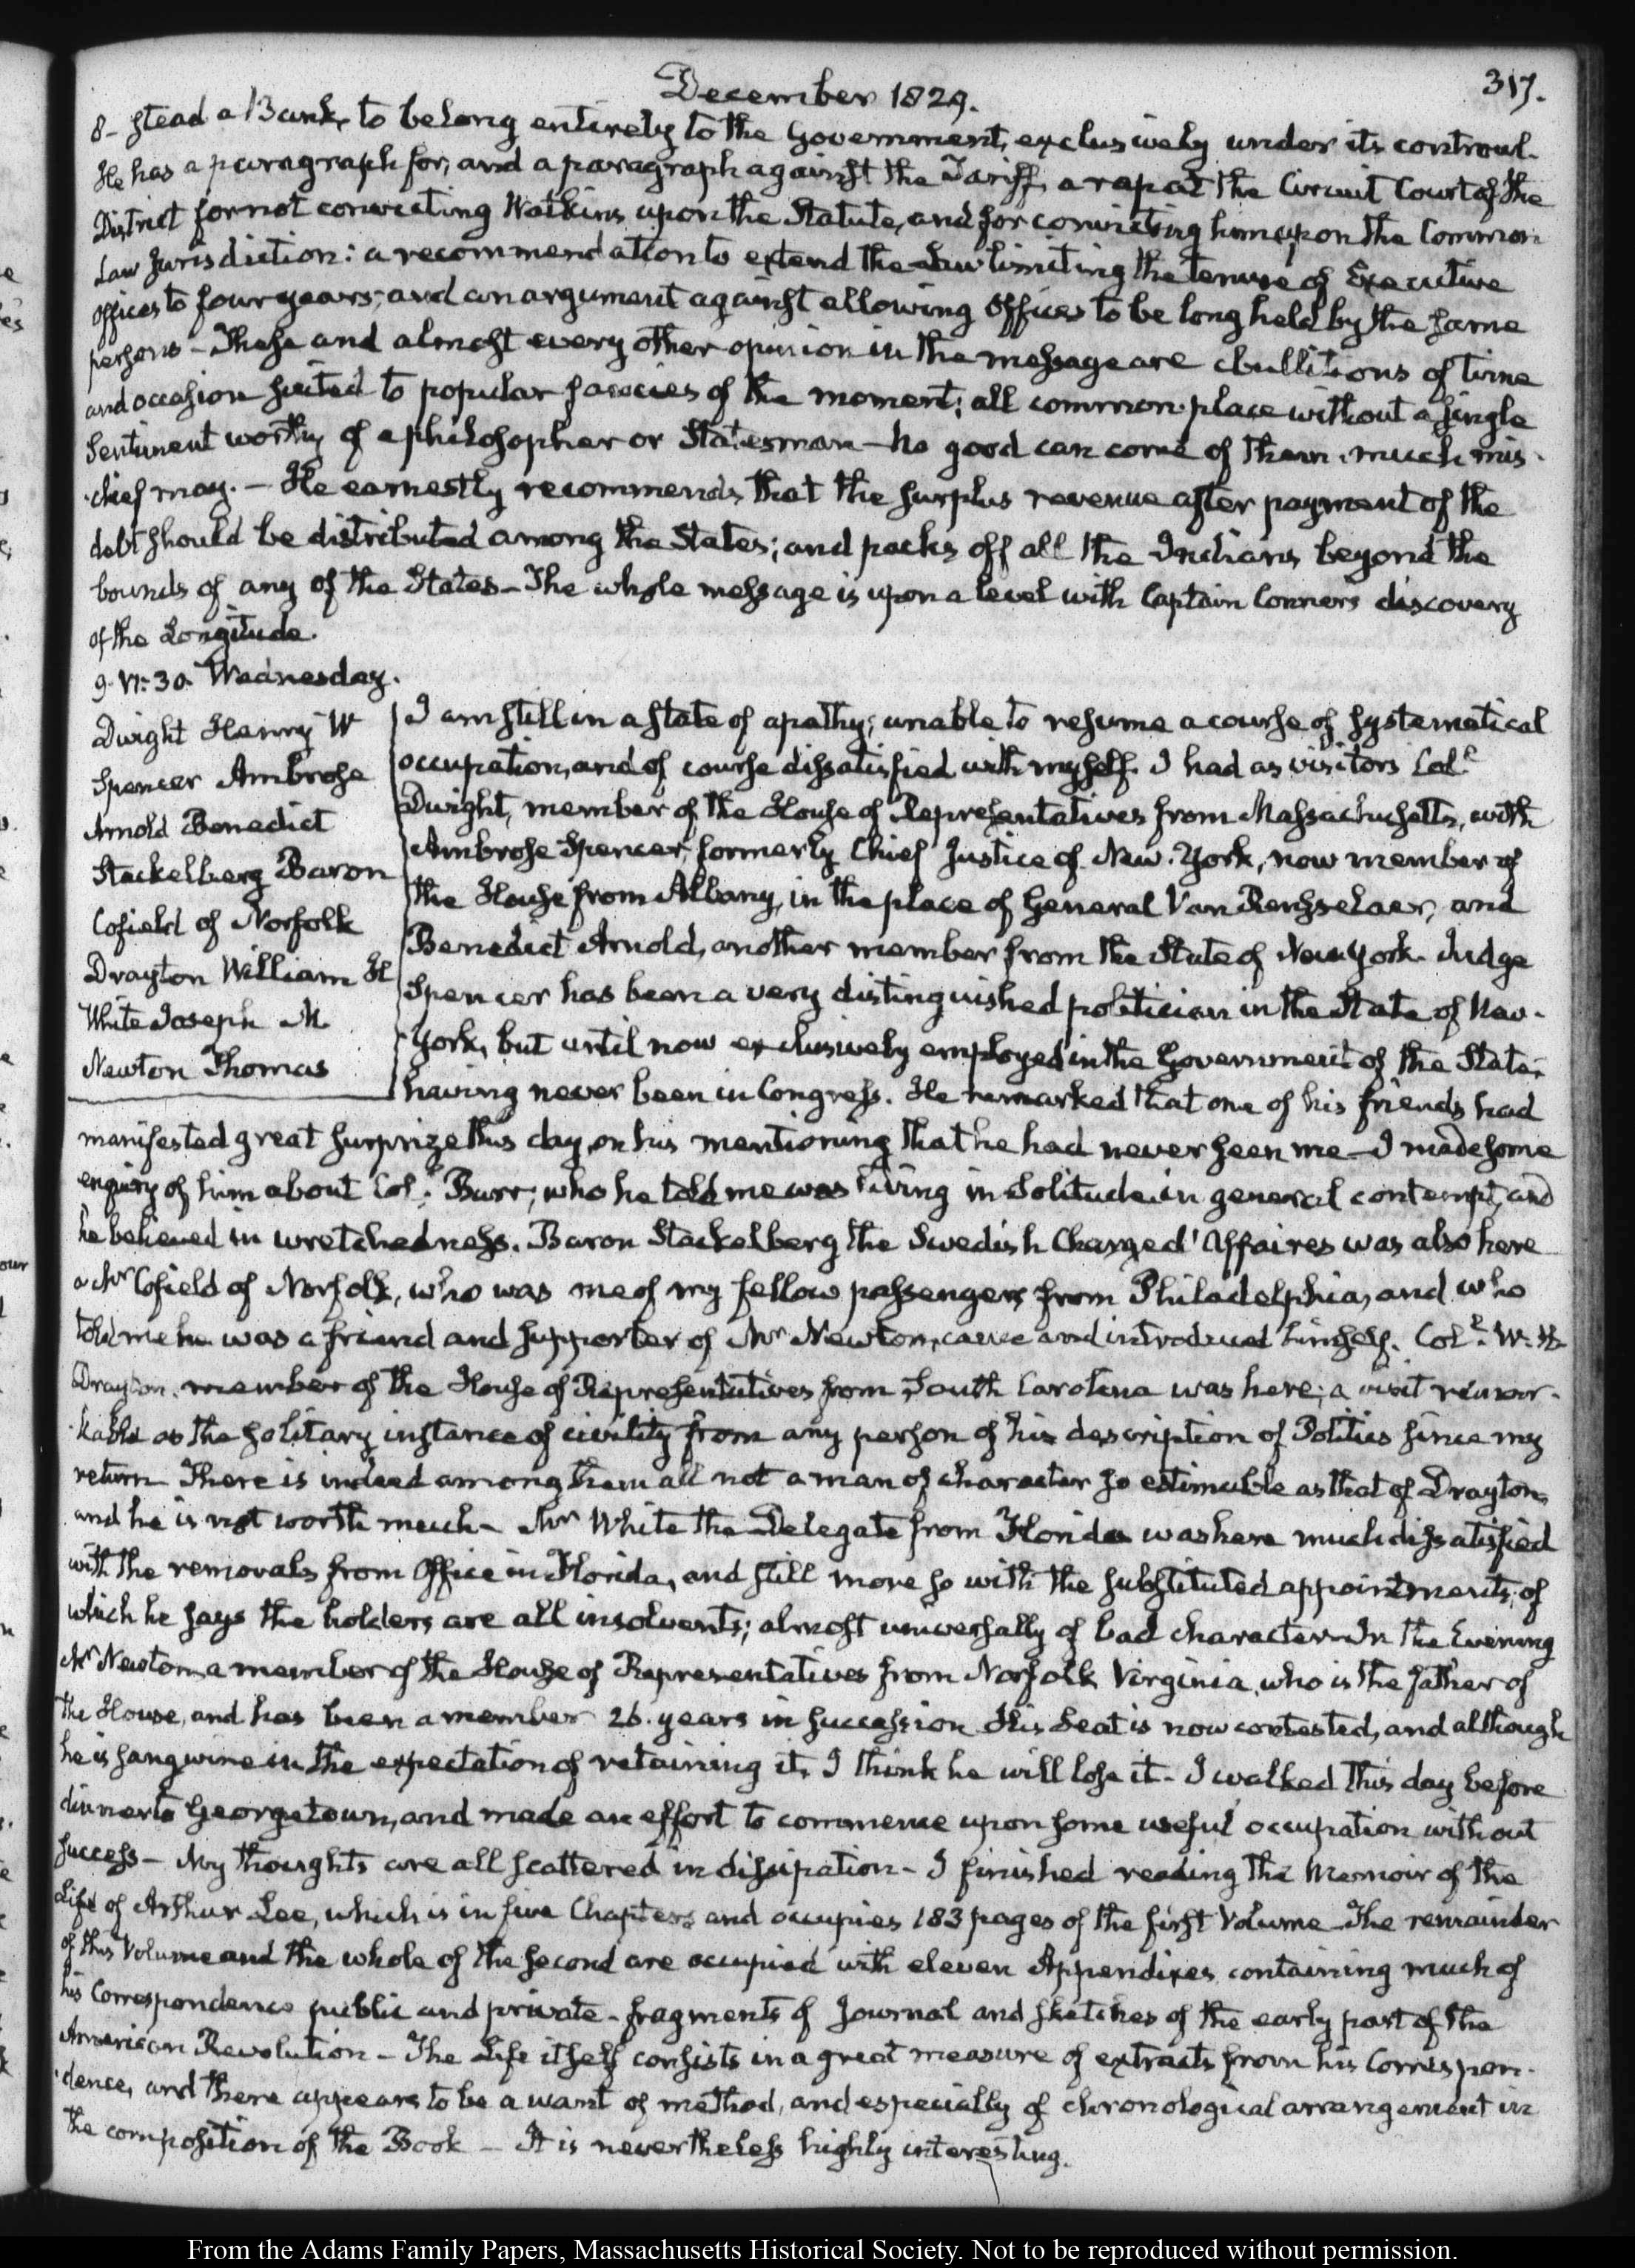 December 1829.
317.
8- stead a Bank, to belong entirely to the Government, exclusively under its controul.
He has a paragraph for, and a paragraph against the Tariff, a rap at the Circuit Court of the
District for not convicting Watkins upon the Statute, and for convicting him upon the Common
Law Jurisdiction: a recommendation to extend the Law limiting the tenure of Executive
Offices to four years; and an argument against allowing Offices to be long held by the same
persons - These and almost every other opinion in the message are ebullitions of time
and occasion suited to popular fancies of the moment; all common-place without a single
Sentiment worthy of a philosopher or Statesman - No good can come of them. much mis-
-chief may. - He earnestly recommends that the surplus revenue after payment of the
debt should be distributed among the States; and packs off all the Indians beyond the
bounds of any of the States - The whole message is upon a level with Captain Conners discovery
of the Longitude.
9. VI:30. Wednesday.
Dwight Henry W
Spencer Ambrose
Arnold Benedict
Stackelberg Baron
Cofield of Norfolk
Drayton William H
White Joseph M.
Newton Thomas
I am still in a state of apathy; unable to resume a course of systematical
occupation, and of course dissatisfied with myself. I had as visitors Coll.
Dwight, member of the House of Representatives from Massachusetts, with
Ambrose Spencer, formerly Chief Justice of New-York, now member of
the House from Albany, in the place of General Van Rensselaer, and
Benedict Arnold, another member from the State of New York. Judge
Spencer has been a very distinguished politician in the State of New-
-York, but until now exclusively employed in the Government of the State;
having never been in Congress. He remarked that one of his friends had
manifested great surprize this day, on his mentioning that he had never seen me - I made some
enquiry of him about Coll. Burr; who he told me was living in solitude in general contempt, and
he believed in wretchedness. Baron Stackelberg the Swedish Chargé d'Affaires was also here
a Mr Cofield of Norfolk, who was one of my fellow passengers from Philadelphia, and who
told me he was a friend and supporter of Mr Newton, came and introduced himself. Coll. W. H.
Drayton, member of the House of Representatives from South Carolina was here; a visit remar-
-kable as the solitary instance of civility from any person of his description of Politics since my
return There is indeed among them all not a man of character so estimable as that of Drayton,
and he is not worth much - Mr White the Delegate from Florida was here much dissatisfied
with the removals from Office in Florida, and still more so with the substituted appointments; of
which he says the holders are all insolvents; almost universally of bad character - In the Evening
Mr Newton, a member of the House of Representatives from Norfolk Virginia, who is the father of
the House, and has been a member 26. years in succession His Seat is now contested, and although
he is sanguine in the expectation of retaining it, I think he will lose it - I walked this day before
dinner to Georgetown, and made an effort to commence upon some useful occupation without
success - My thoughts are all scattered in dissipation - I finished reading the Memoir of the
Life of Arthur Lee, which is in five Chapters and occupies 183 pages of the first Volume - The remainder
of this Volume and the whole of the second are occupied with eleven Appendixes, containing much of
his Correspondence public and private - fragments of Journal and sketches of the early part of the
American Revolution - The Life itself consists in a great measure of extracts from his Correspon-
-dence, and there appears to be a want of method, and especially of chronological arrangement in
the composition of the Book - It is nevertheless highly interesting.
From the Adams Family Papers, Massachusetts Historical Society. Not to be reproduced without permission.